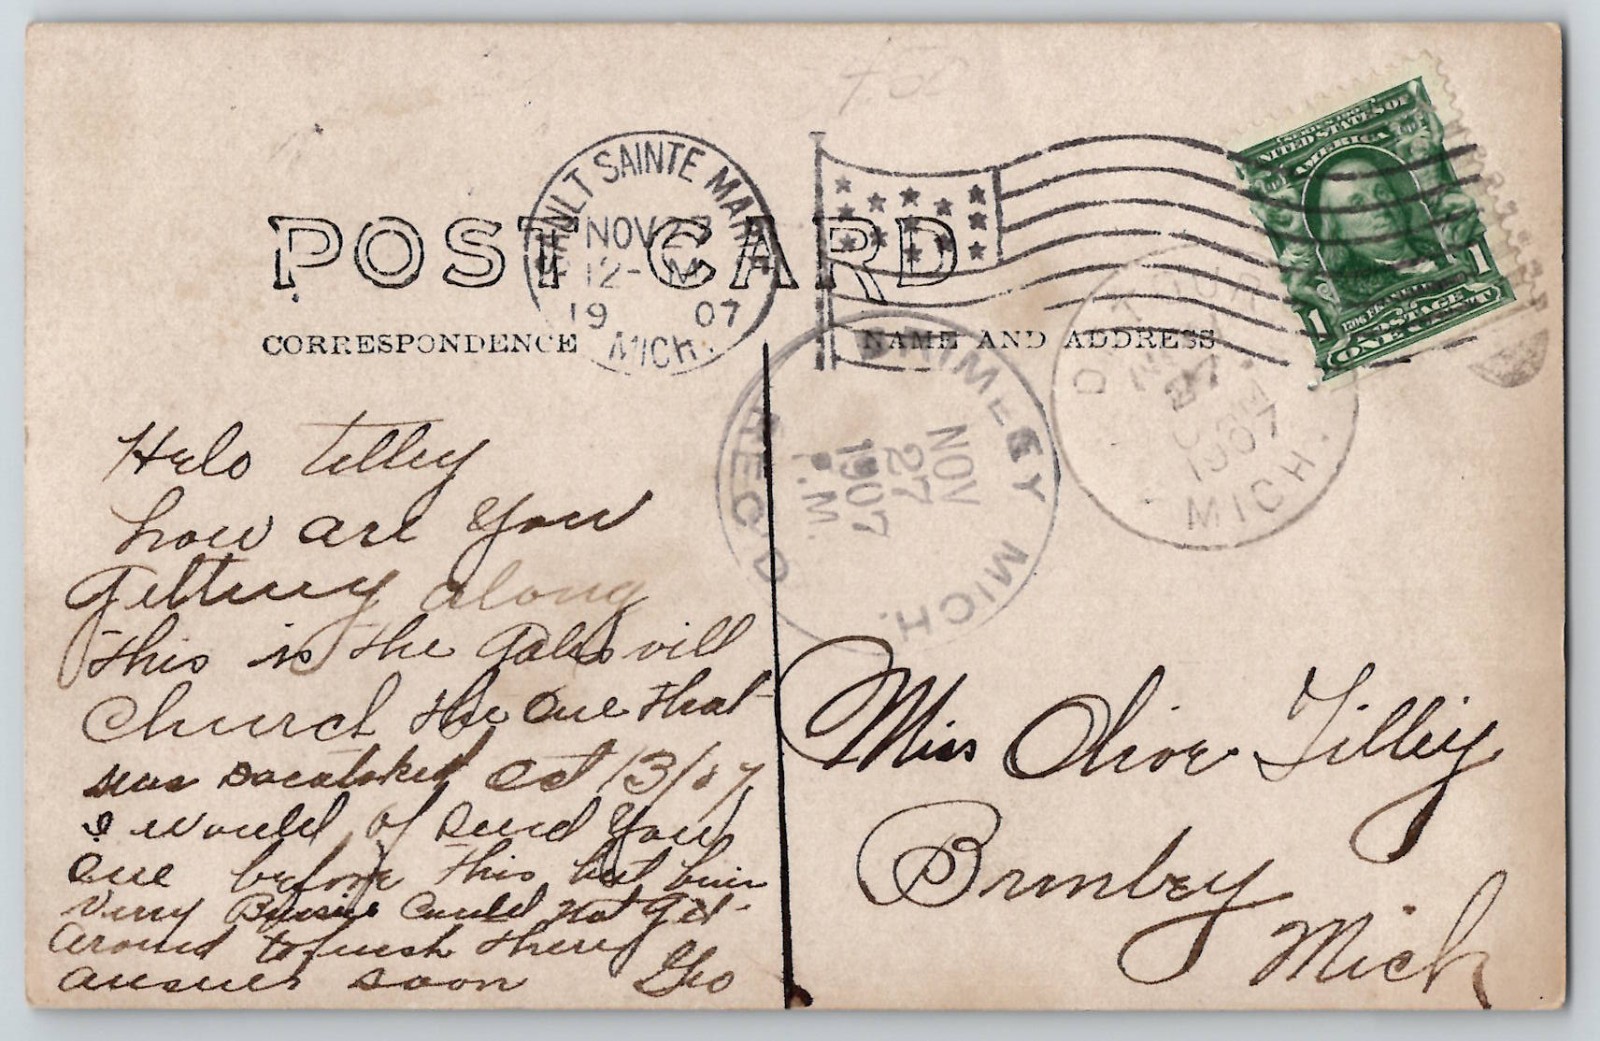 POST CARD
CORRESPONDENCE
NAME AND ADDRESS
SAULT SAINTE MARIE
NOV 27
12- M
19 07
MICH.
BRIMLEY MICH.
NOV
27
1907
P.M.
REC'D
DETOUR
NOV
27
1907
MICH.
SERIES 1902
UNITED STATES OF
AMERICA
1706 FRANKLIN 1790
POSTAGE
ONE CENT
1 1
Helo tilley
how are you
Getting along
this is the Galesvill
Church the one that
was Dacataked Oct 13/07
I would of Send you
one before this but bin
verry Bussie Could not get
around to finish there
answer soon Geo
Miss Olive Tilley
Brimley
Mich